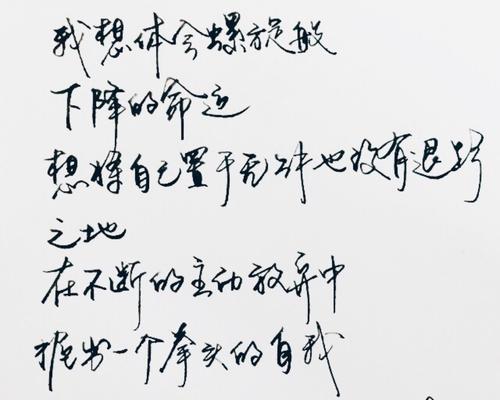 我想体会螺旋般
下降的命运
想将自己置于无也没有退路
之地
在不断的主动放弃中
握出一个拳头的自我